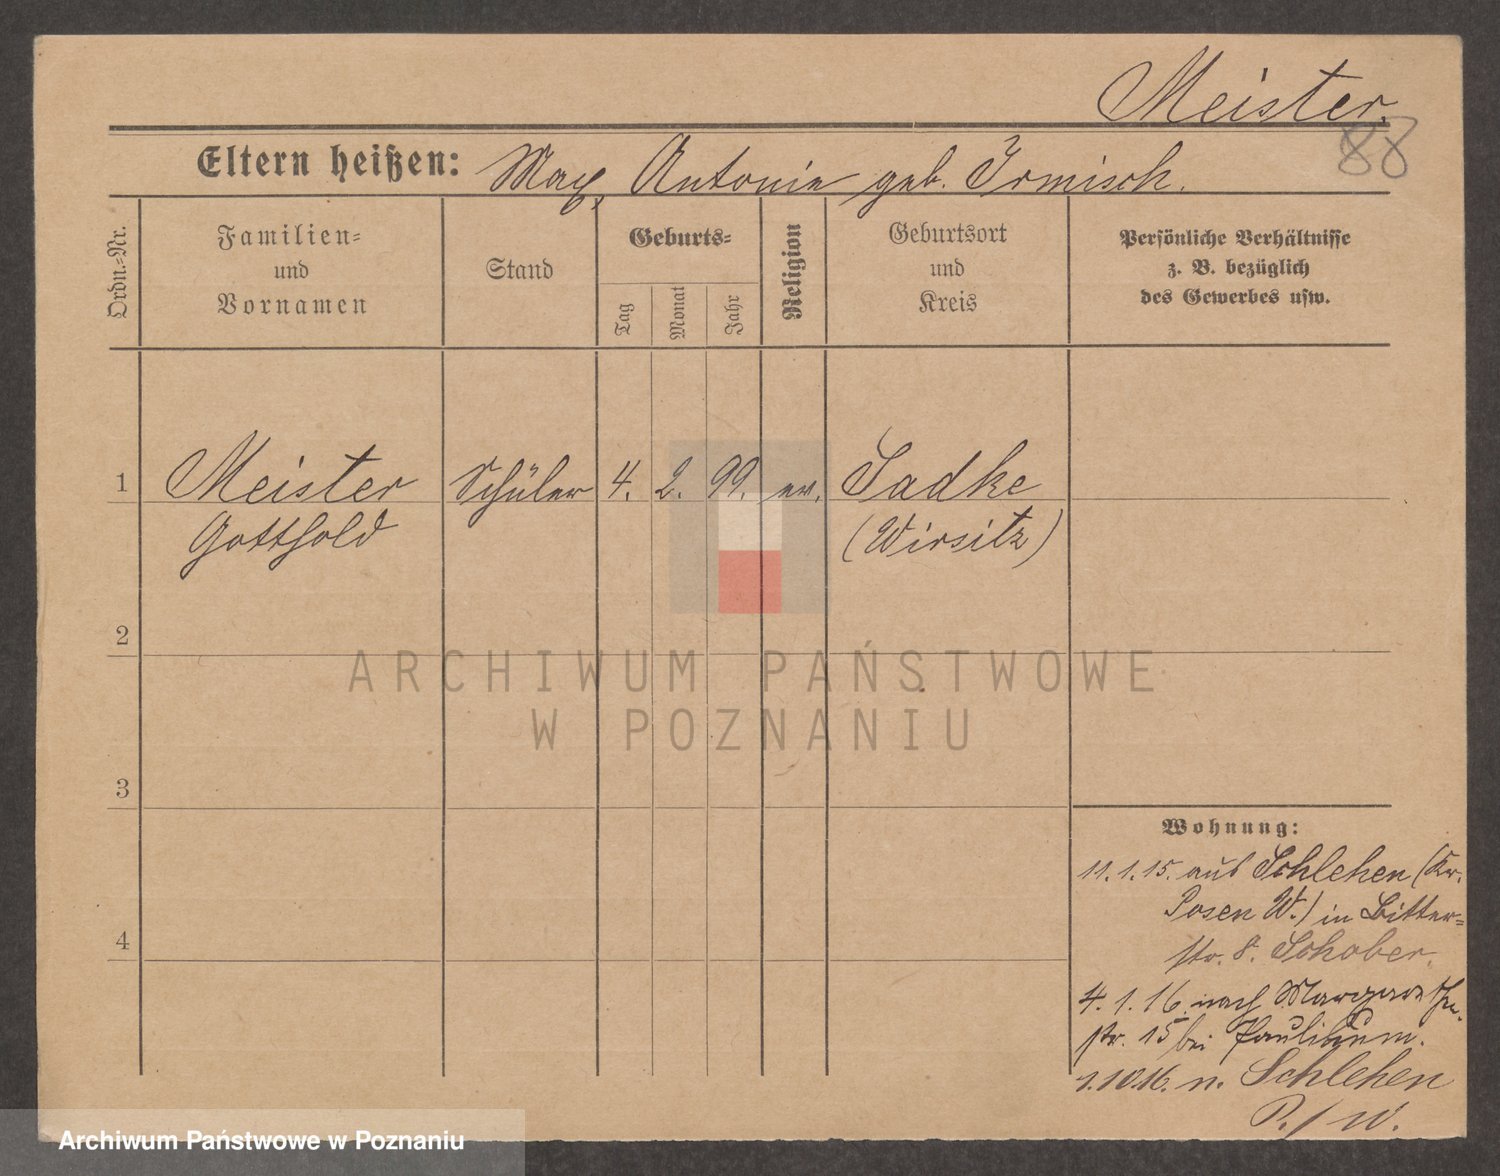 Meister.
88
Eltern heißen: Max, Antonie geb. Irmisch.
Ordn.=Nr.
Familien=
und
Vornamen
Stand
Geburts=
Tag
Monat
Jahr
Religion
Geburtsort
und
Kreis
Persönliche Verhältnisse
z. B. bezüglich
des Gewerbes usw.
1 Meister Schüler 4. 2. 99. ev. Sadke
Gotthold (Wirsitz)
2
ARCHIWUM PAŃSTWOWE
W POZNANIU
3
Wohnung:
11.1.15. aus Schlehen (Kr.
Posen W.) in Bitter=
4
str. 8. Schober.
4.1.16. nach Margarethen-
str. 15 bei Paulinum.
1.10.16. n. Schlehen
P./W.
Archiwum Państwowe w Poznaniu